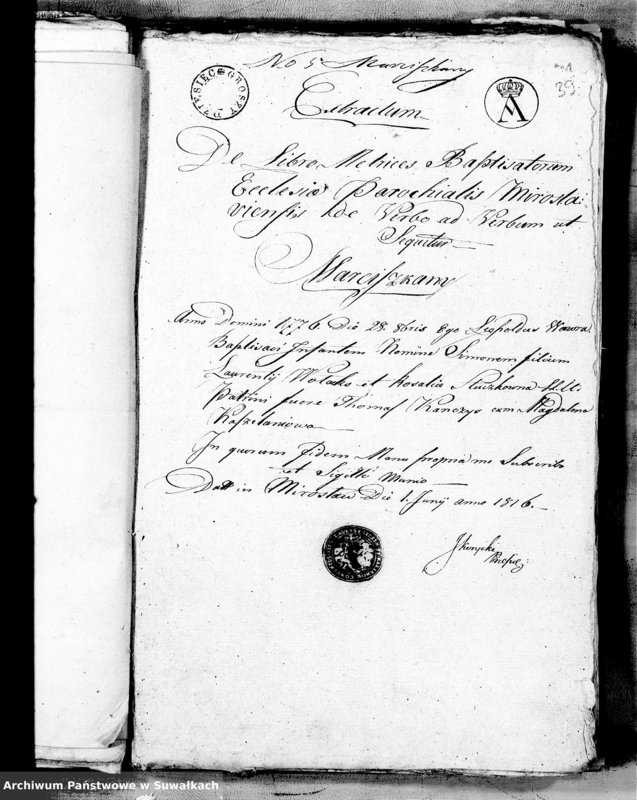 No 5 Marciszkany
39.
DZIESIĘĆ GROSZY
A
Extractum
De Libro Metrices Baptisatorum
Ecclesiæ Parochialis Mirosla:
viensis de Verbo ad Verbum ut
Sequitur
Marciszkany
Anno Domini 1776. Die 28. 8bris Ego Leopoldus Wawra
Baptisavi Infantem Nomine Simonem filium
Laurentij Wołosko et Rosalia Sluzkowna
Patrini fuere Thomas Kanczys cum Magdalena
Kasztelaniowa
In quorum fidem Manu propria me Subscribo
et Sigillo Munio
Dat in Mirosław Die 1. Junij anno 1816.
Archiwum Państwowe w Suwałkach